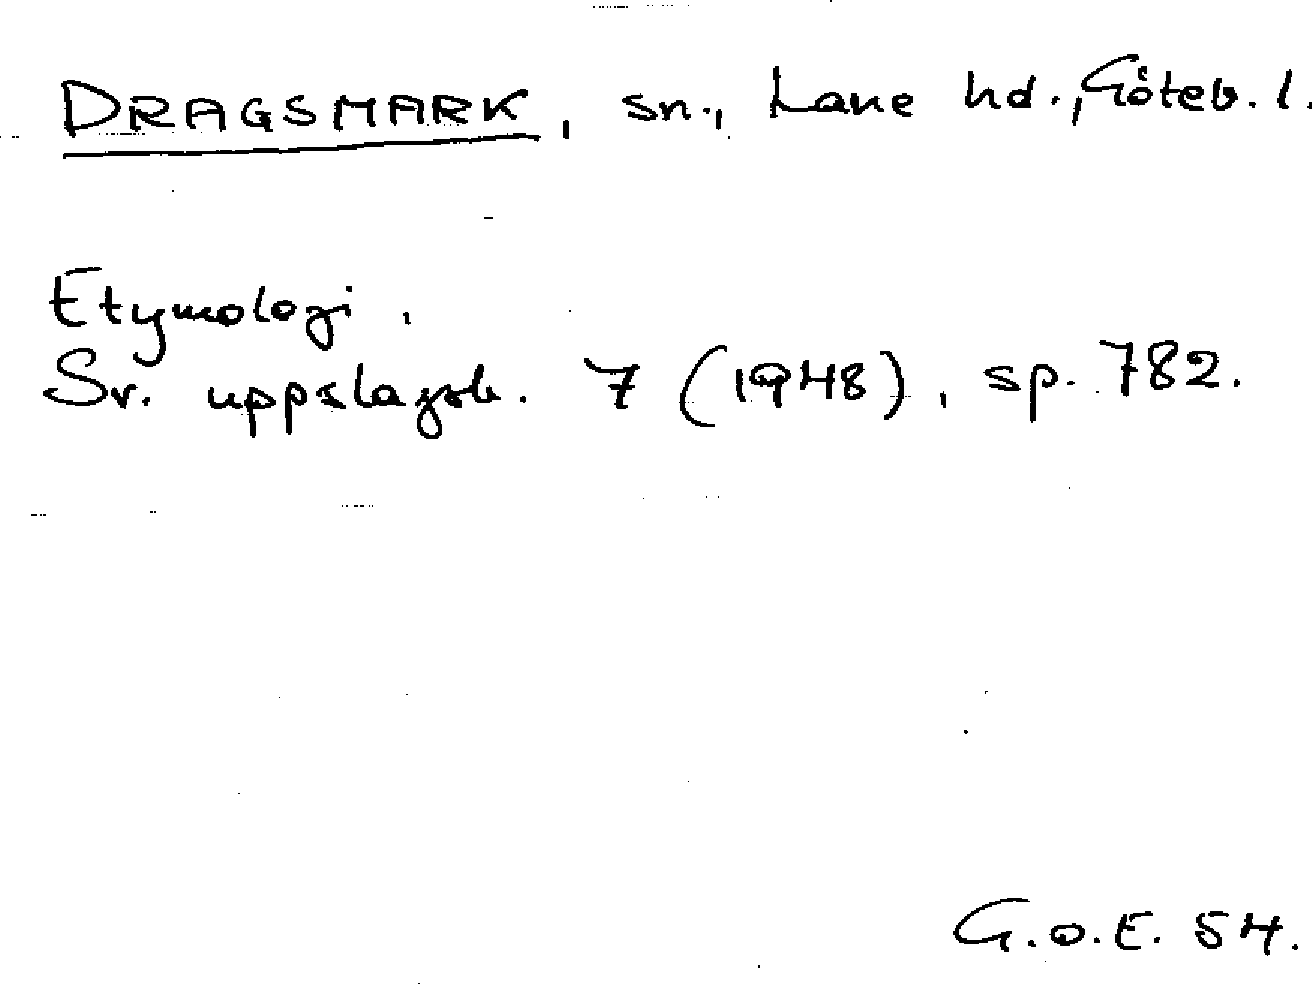 DRAGSMARK, sn., Lane hd., Göteb. l.
Etymologi.
Sv. uppslagsb. 7 (1948), sp. 782.
G.O.E. 54.